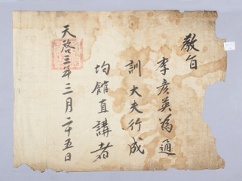 教旨
李彦英爲通
訓大夫行成
均館直講者
天啓三年三月二十五日